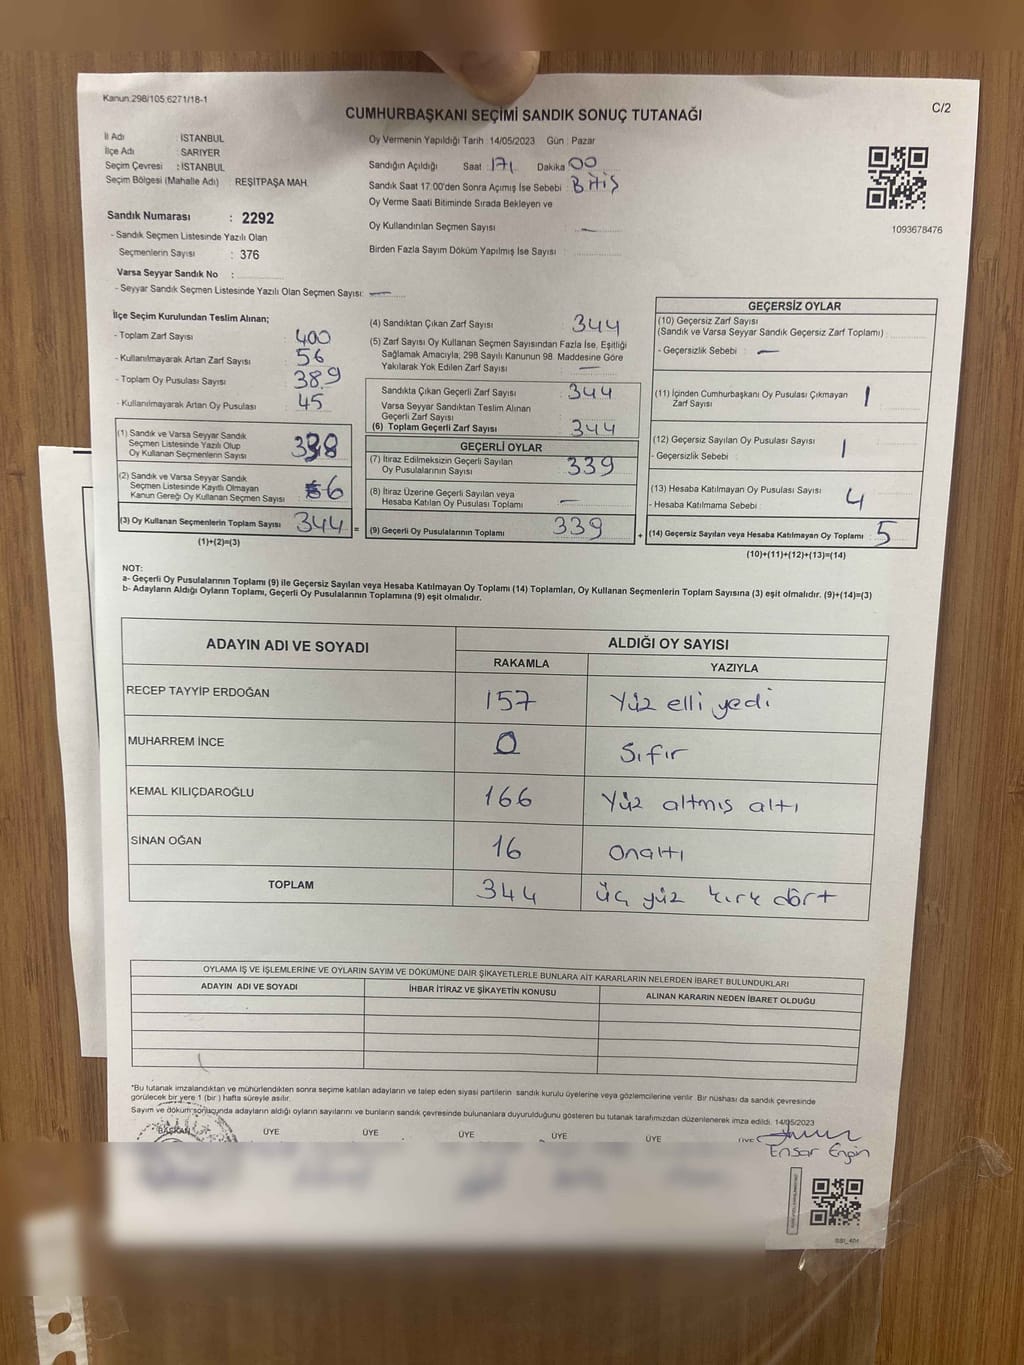 Kanun:298/105:6271/18-1
C/2
CUMHURBAŞKANI SEÇİMİ SANDIK SONUÇ TUTANAĞI
İl Adı : İSTANBUL
İlçe Adı : SARIYER
Seçim Çevresi : İSTANBUL
Seçim Bölgesi (Mahalle Adı) : REŞİTPAŞA MAH.
Sandık Numarası : 2292
- Sandık Seçmen Listesinde Yazılı Olan
Seçmenlerin Sayısı : 376
Varsa Seyyar Sandık No :
- Seyyar Sandık Seçmen Listesinde Yazılı Olan Seçmen Sayısı: —
Oy Vermenin Yapıldığı Tarih : 14/05/2023 Gün : Pazar
Sandığın Açıldığı Saat : 17 Dakika 00
Sandık Saat 17:00'den Sonra Açımış İse Sebebi : Bitiş
Oy Verme Saati Bitiminde Sırada Bekleyen ve
Oy Kullandırılan Seçmen Sayısı : —
Birden Fazla Sayım Döküm Yapılmış İse Sayısı :
1093678476
İlçe Seçim Kurulundan Teslim Alınan;
- Toplam Zarf Sayısı : 400
- Kullanılmayarak Artan Zarf Sayısı : 56
- Toplam Oy Pusulası Sayısı : 389
- Kullanılmayarak Artan Oy Pusulası : 45
(1) Sandık ve Varsa Seyyar Sandık
Seçmen Listesinde Yazılı Olup
Oy Kullanan Seçmenlerin Sayısı : 338
(2) Sandık ve Varsa Seyyar Sandık
Seçmen Listesinde Kayıtlı Olmayan
Kanun Gereği Oy Kullanan Seçmen Sayısı : 6
(3) Oy Kullanan Seçmenlerin Toplam Sayısı : 344 =
(1)+(2)=(3)
(4) Sandıktan Çıkan Zarf Sayısı : 344
(5) Zarf Sayısı Oy Kullanan Seçmen Sayısından Fazla İse, Eşitliği
Sağlamak Amacıyla; 298 Sayılı Kanunun 98. Maddesine Göre
Yakılarak Yok Edilen Zarf Sayısı : —
Sandıkta Çıkan Geçerli Zarf Sayısı : 344
Varsa Seyyar Sandıktan Teslim Alınan
Geçerli Zarf Sayısı :
(6) Toplam Geçerli Zarf Sayısı : 344
GEÇERLİ OYLAR
(7) İtiraz Edilmeksizin Geçerli Sayılan
Oy Pusulalarının Sayısı : 339
(8) İtiraz Üzerine Geçerli Sayılan veya
Hesaba Katılan Oy Pusulası Toplamı : —
(9) Geçerli Oy Pusulalarının Toplamı : 339 +
GEÇERSİZ OYLAR
(10) Geçersiz Zarf Sayısı
(Sandık ve Varsa Seyyar Sandık Geçersiz Zarf Toplamı)
- Geçersizlik Sebebi : —
(11) İçinden Cumhurbaşkanı Oy Pusulası Çıkmayan
Zarf Sayısı : 1
(12) Geçersiz Sayılan Oy Pusulası Sayısı : 1
- Geçersizlik Sebebi :
(13) Hesaba Katılmayan Oy Pusulası Sayısı : 4
- Hesaba Katılmama Sebebi :
(14) Geçersiz Sayılan veya Hesaba Katılmayan Oy Toplamı : 5
(10)+(11)+(12)+(13)=(14)
NOT:
a- Geçerli Oy Pusulalarının Toplamı (9) ile Geçersiz Sayılan veya Hesaba Katılmayan Oy Toplamı (14) Toplamları, Oy Kullanan Seçmenlerin Toplam Sayısına (3) eşit olmalıdır. (9)+(14)=(3)
b- Adayların Aldığı Oyların Toplamı, Geçerli Oy Pusulalarının Toplamına (9) eşit olmalıdır.
ADAYIN ADI VE SOYADI ALDIĞI OY SAYISI
RAKAMLA YAZIYLA
RECEP TAYYİP ERDOĞAN 157 Yüz elli yedi
MUHARREM İNCE 0 Sıfır
KEMAL KILIÇDAROĞLU 166 Yüz altmış altı
SİNAN OĞAN 16 Onaltı
TOPLAM 344 üç yüz kırk dört
OYLAMA İŞ VE İŞLEMLERİNE VE OYLARIN SAYIM VE DÖKÜMÜNE DAİR ŞİKAYETLERLE BUNLARA AİT KARARLARIN NELERDEN İBARET BULUNDUKLARI
ADAYIN ADI VE SOYADI İHBAR İTİRAZ VE ŞİKAYETİN KONUSU ALINAN KARARIN NEDEN İBARET OLDUĞU
*Bu tutanak imzalandıktan ve mühürlendikten sonra seçime katılan adayların ve talep eden siyasi partilerin sandık kurulu üyelerine veya gözlemcilerine verilir. Bir nüshası da sandık çevresinde
görülecek bir yere 1 (bir) hafta süreyle asılır.
Sayım ve döküm sonucunda adayların aldığı oyların sayılarını ve bunların sandık çevresinde bulunanlara duyurulduğunu gösteren bu tutanak tarafımızdan düzenlenerek imza edildi. 14/05/2023
BAŞKAN ÜYE ÜYE ÜYE ÜYE ÜYE ÜYE
Ensar Engin